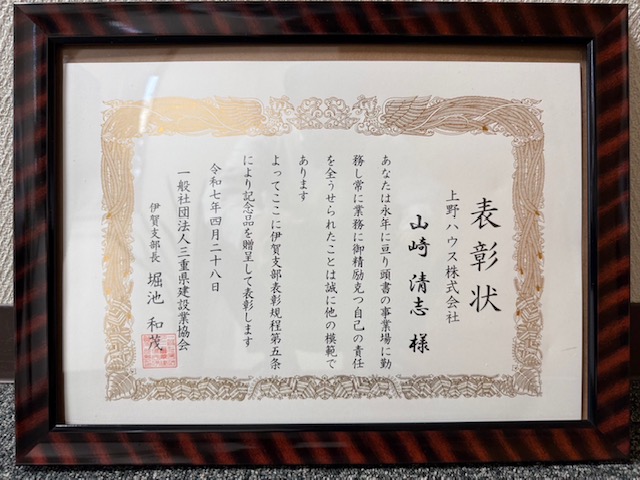 表彰状
上野ハウス株式会社
山崎 清志 様
あなたは永年に亘り頭書の事業場に勤
務し常に業務に御精励克つ自己の責任
を全うせられたことは誠に他の模範で
あります
よってここに伊賀支部表彰規程第五条
により記念品を贈呈して表彰します
令和七年四月二十八日
一般社団法人三重県建設業協会
伊賀支部長 堀池 和茂